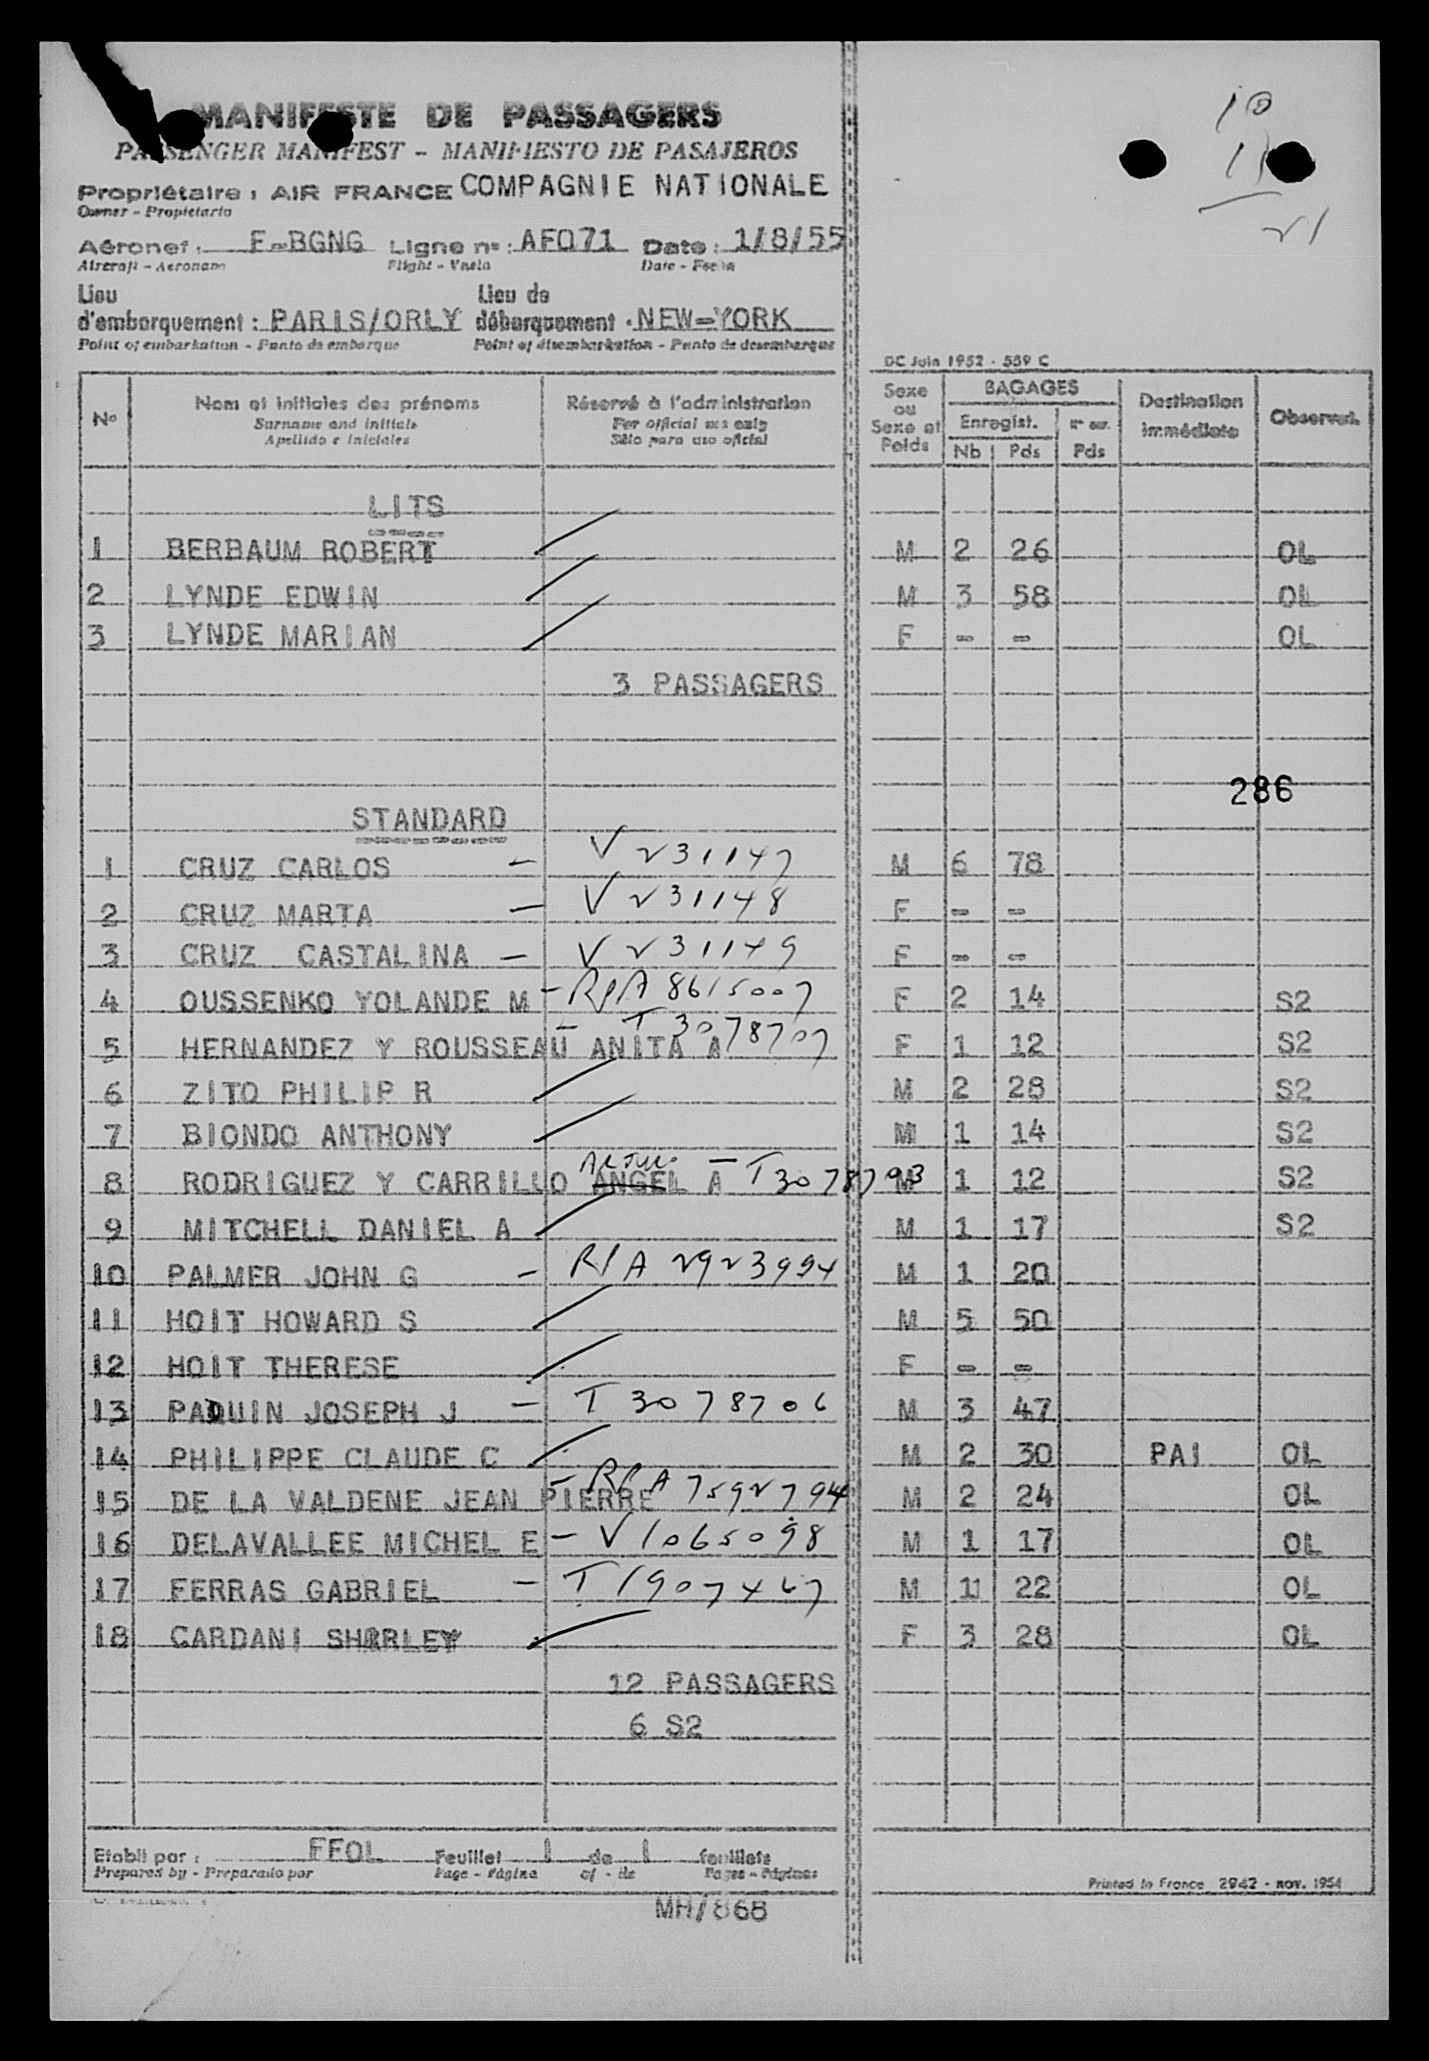 MANIFESTE DE PASSAGERS
PASSENGER MANIFEST - MANIFIESTO DE PASAJEROS
Propriétaire : AIR FRANCE COMPAGNIE NATIONALE
Owner - Propietario
Aéronef : F-BGNG Ligne n° : AF071 Date : 1/8/55
Aircraft - Aeronave Flight - Vuelo Date - Fecha
Lieu d'embarquement : PARIS/ORLY Lieu de débarquement : NEW-YORK
Point of embarkation - Punto de embarque Point of disembarkation - Punto de desembarque
10
11
21
DC Juin 1952 - 559 C
N° Nom et initiales des prénoms Réservé à l'administration Sexe ou Sexe et Poids BAGAGES Destination immédiate Observat.
Surname and initials For official use only Enregist.
Apellido e iniciales Sólo para uso oficial Nb Pds Pds
LITS
1 BERBAUM ROBERT M 2 26 OL
2 LYNDE EDWIN M 3 58 OL
3 LYNDE MARIAN F - - OL
3 PASSAGERS
286
STANDARD
1 CRUZ CARLOS - V 231147 M 6 78
2 CRUZ MARTA - V 231148 F - -
3 CRUZ CASTALINA - V 231149 F - -
4 OUSSENKO YOLANDE M - RPA 8615007 F 2 14 S2
5 HERNANDEZ Y ROUSSEAU ANITA A - T 3078707 F 1 12 S2
6 ZITO PHILIP R M 2 28 S2
7 BIONDO ANTHONY M 1 14 S2
8 RODRIGUEZ Y CARRILLO ANGEL A - T3078703 M 1 12 S2
9 MITCHELL DANIEL A M 1 17 S2
10 PALMER JOHN G - RPA 2923994 M 1 20
11 HOIT HOWARD S M 5 50
12 HOIT THERESE F - -
13 PAQUIN JOSEPH J - T 3078706 M 3 47
14 PHILIPPE CLAUDE C M 2 30 PAI OL
15 DE LA VALDENE JEAN PIERRE - RPA 7592794 M 2 24 OL
16 DELAVALLEE MICHEL E - V 1065098 M 1 17 OL
17 FERRAS GABRIEL - T 1907467 M 1 22 OL
18 CARDANI SHIRLEY F 3 28 OL
12 PASSAGERS
6 S2
Etabli par : FFOL Feuillet 1 de 1 feuillets
Prepared by - Preparado por Page - Página of - de Pages - Páginas
Printed in France 2942 - nov. 1954
MH/868